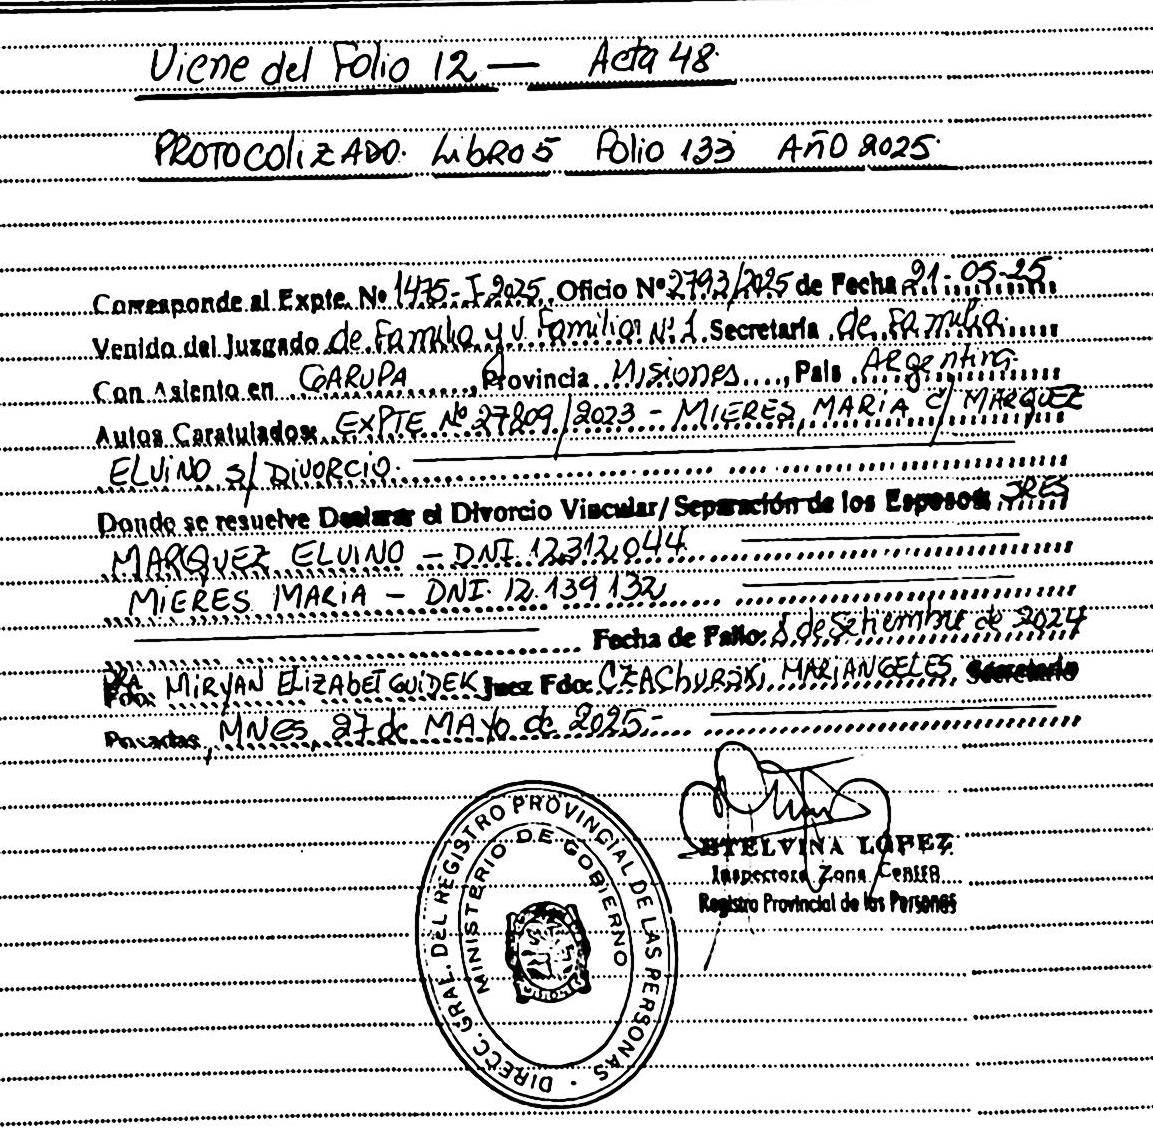 Viene del Folio 12 — Acta 48.
PROTOCOLIZADO. LIBRO 5 Folio 133 AÑO 2025.
Corresponde al Expte. Nº 1475-I-2025. Oficio Nº 2793/2025 de Fecha 21-05-25
Venido del Juzgado de Familia y V. Familiar Nº 1. Secretaría de Familia.
Con Asiento en GARUPA, Provincia Misiones, País Argentina.
Autos Caratulados: EXPTE Nº 27809/2023 - MIERES, MARIA C/ MARQUEZ
ELVINO S/ DIVORCIO.
Donde se resuelve Declarar el Divorcio Vincular/Separación de los Esposos SRES
MARQUEZ ELVINO - DNI. 12.312.044
MIERES MARIA - DNI. 12.139.132
Fecha de Fallo: de Setiembre de 2024
DRA
Fdo: MIRYAN ELIZABET GUIDEK Juez Fdo: CZACHURSKI, MARIANGELES. Secretario
Posadas, MNES, 27 de MAYO de 2025.-
DIRECC. GRAL. DEL REGISTRO PROVINCIAL DE LAS PERSONAS
MINISTERIO DE GOBIERNO
ETELVINA LOPEZ
Inspectora Zona Centro
Registro Provincial de las Personas